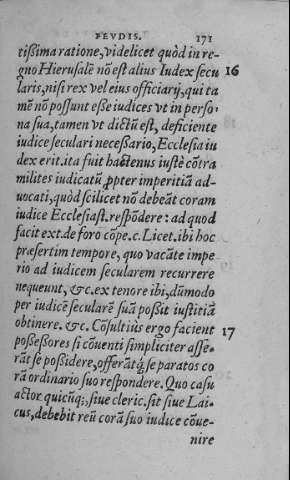 FEVDIS. 171
tißima ratione, videlicet quòd in re-
gno Hierusalẽ nõ est alius Iudex secu 16
laris, nisi rex vel eius officiarij, qui ta
mẽ nõ possunt esse iudices vt in perso
na sua, tamen vt dictũ est, deficiente
iudice seculari necessario, Ecclesia iu
dex erit. ita fuit hactenus iustè cõtra
milites iudicatũ ꝓpter imperitiã ad-
uocati, quòd scilicet nõ debeãt coram
iudice Ecclesiast. respõdere: ad quod
facit ext. de foro cõpe. c. Licet. ibi hoc
præsertim tempore, quo vacãte impe
rio ad iudicem secularem recurrere
nequeunt, &c. ex tenore ibi, dũmodo
per iudicẽ secularẽ suã possit iustitiã
obtinere. &c. Cõsultiùs ergo facient 17
possessores si cõuenti simpliciter asse-
rãt se possidere, offerãtq́; se paratos co
rã ordinario suo respondere. Quo casu
actor quicũq;, siue cleric. sit siue Lai-
cus, debebit reũ corã suo iudice cõue-
nire